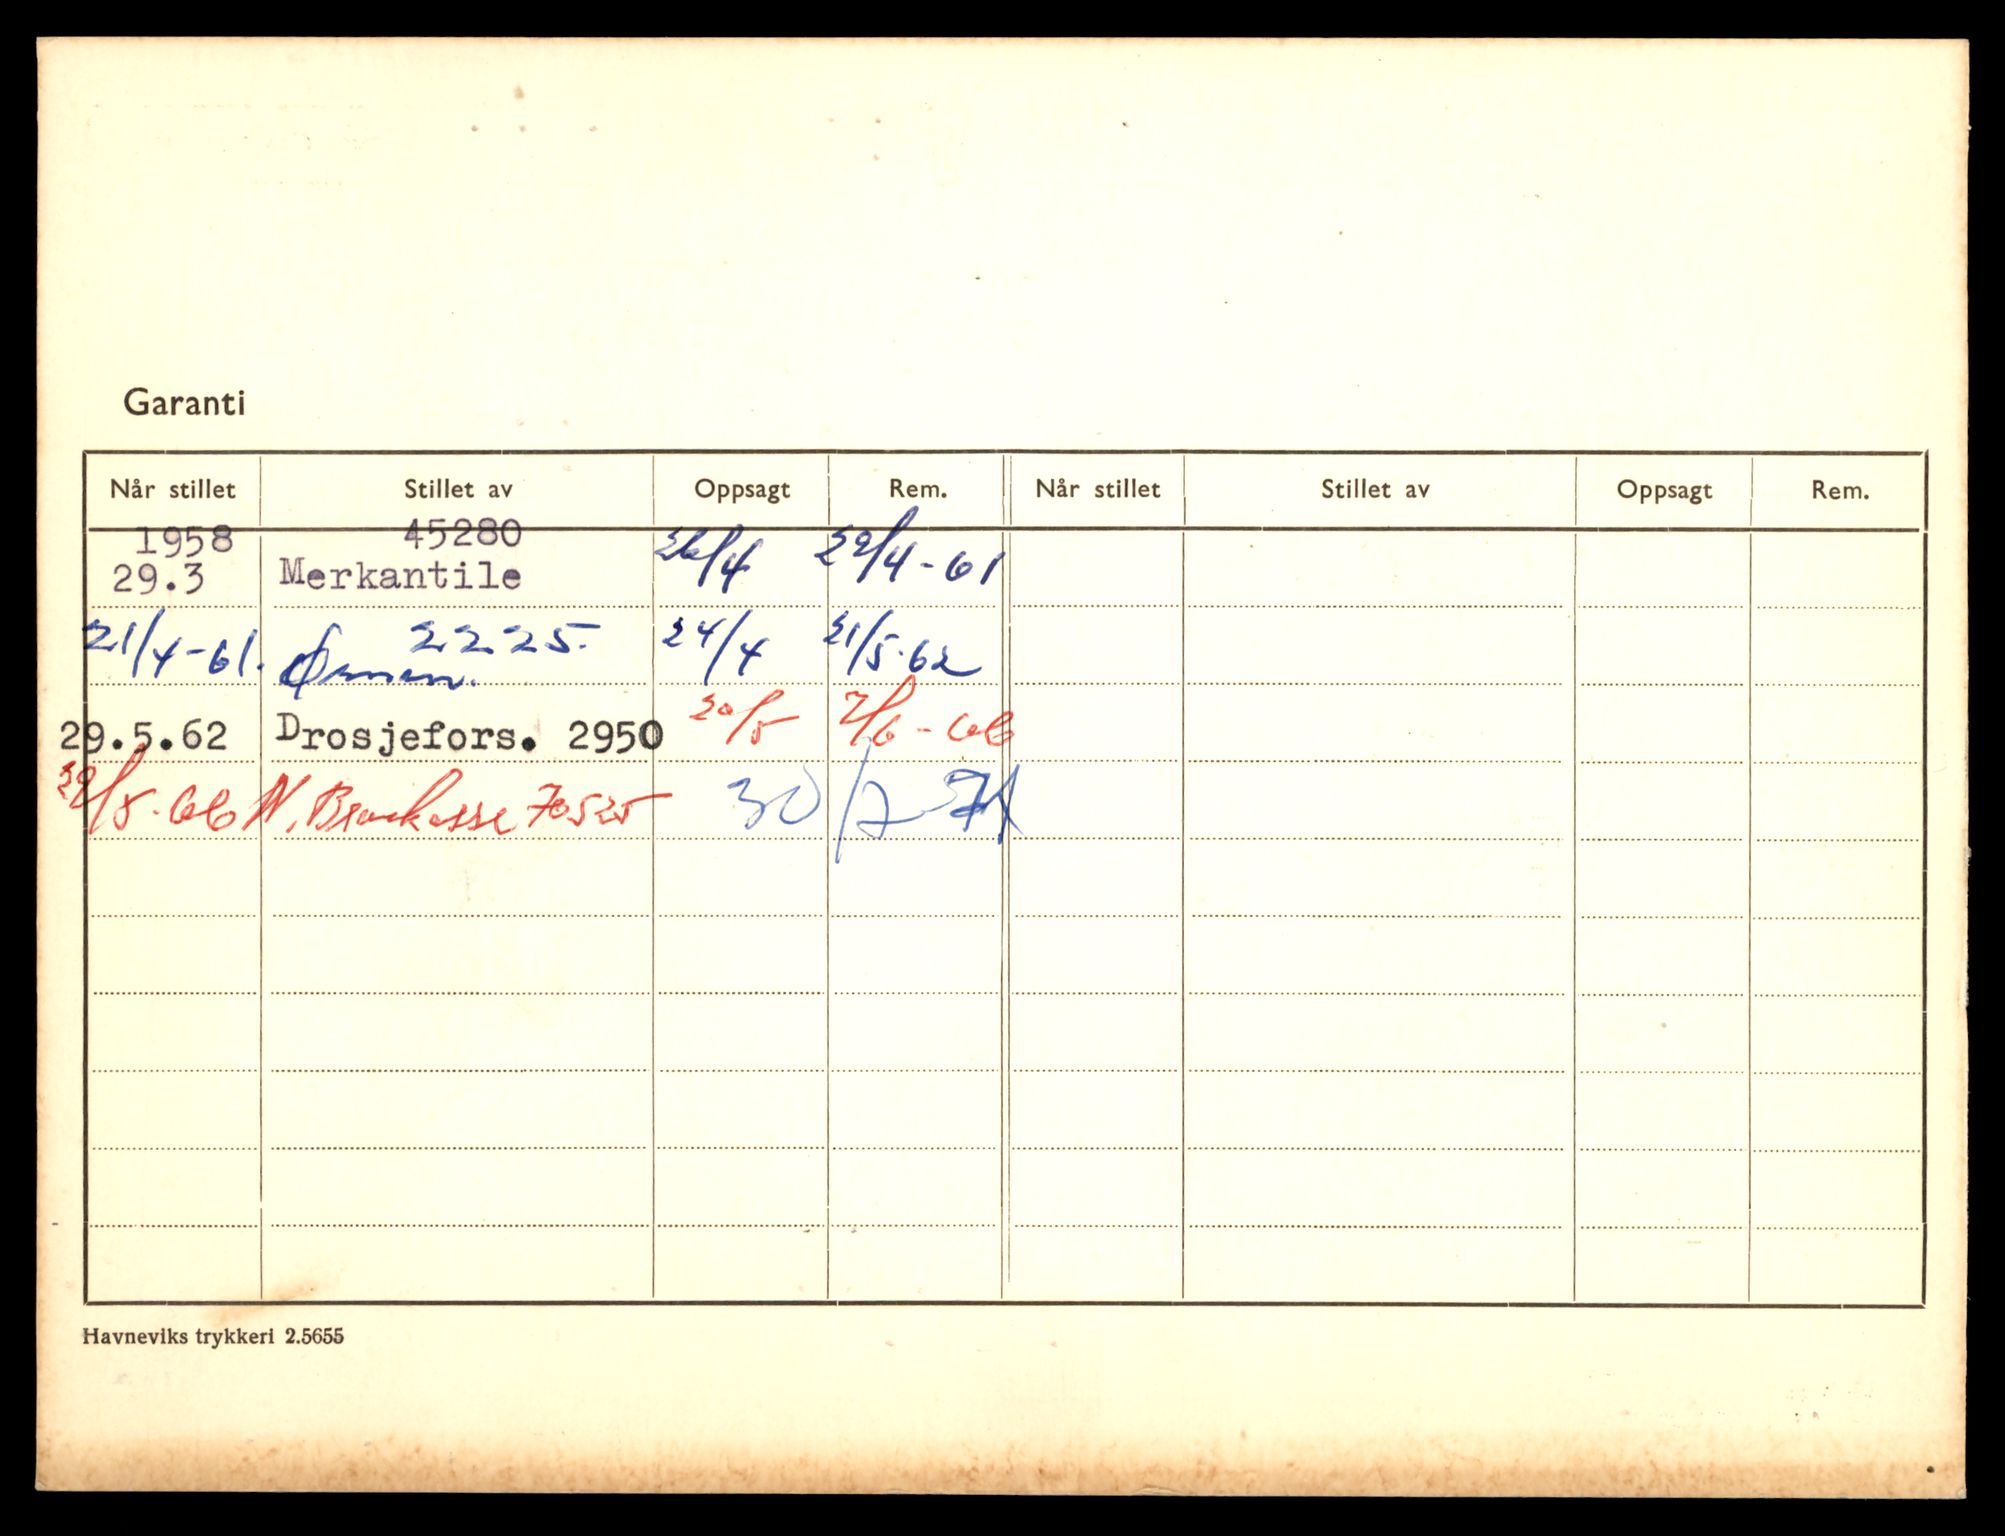 Garanti
Når stillet Stillet av Oppsagt Rem. Når stillet Stillet av Oppsagt Rem.
1958 45280
29.3 Merkantile 26/4 29/4-61
21/4-61. 2225. 24/4 21/5-62
Ørnen.
29.5.62 Drosjefors. 2950 20/5 7/6-66
29/5-66 N. Brankasse 70525 30/7-71
Havneviks trykkeri 2.5655